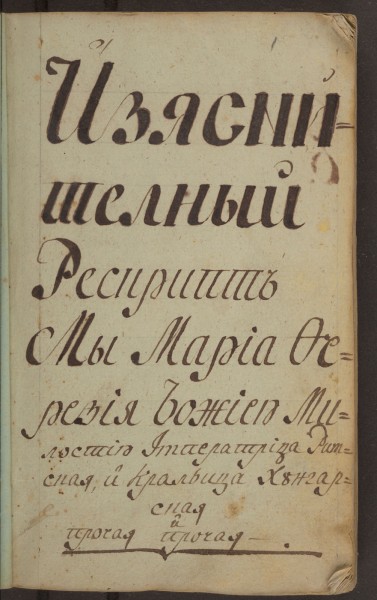 Изясни-
телный
Рескриптъ
Мы Маріа Ѳе=
резія Божіею Ми=
лостію Императріца Рим=
ская, и Кралвица Хꙋнгар=
ская
и
прочая прочая